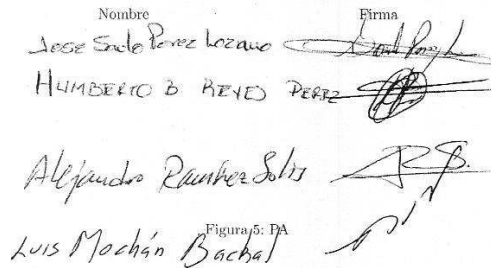 Nombre Firma
Jose Saulo Perez Lozano
HUMBERTO B REYES PEREZ
Alejandro Ramirez Solis
Figura 5: PA
Luis Mochán Backal